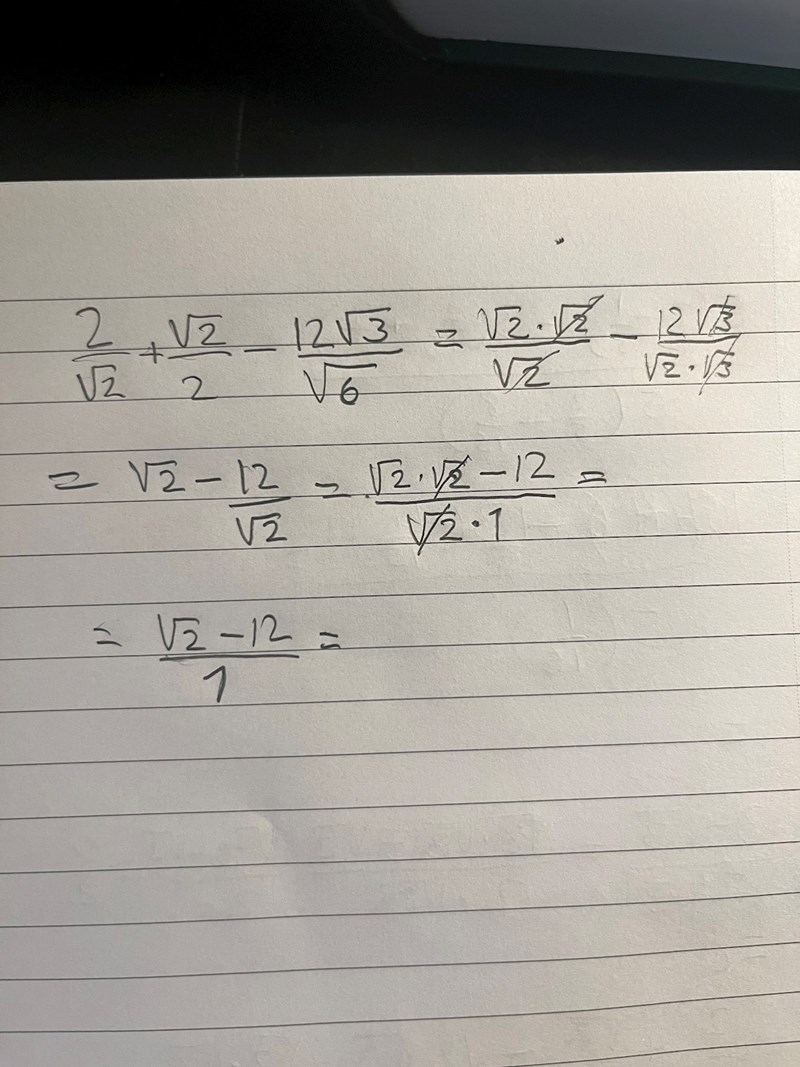 2/√2 + √2/2 - 12√3/√6 = √2·√2/√2 - 12√3/√2·√3
= √2 - 12/√2 = √2·√2 - 12/√2·1 =
= √2 - 12/1 =